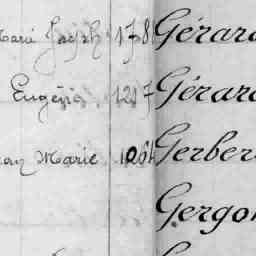 Marie Joseph 178 Gérard
Eugénie 1217 Gérard
Jean Marie 1064 Gerber
Gergon